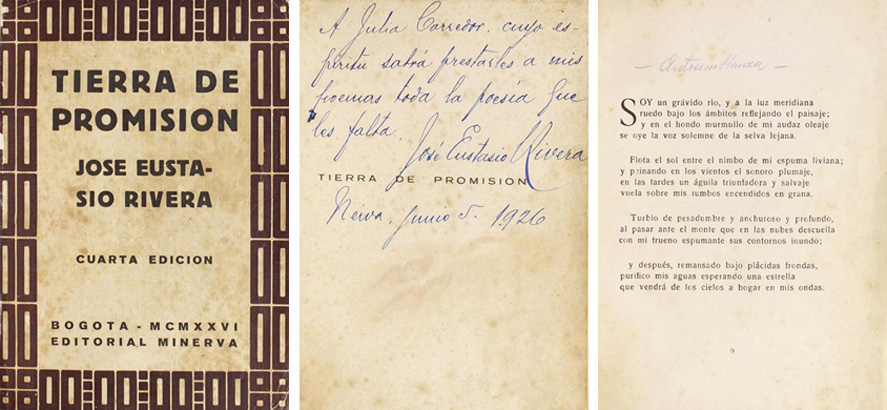 TIERRA DE
PROMISION
JOSE EUSTA-
SIO RIVERA
CUARTA EDICION
BOGOTA - MCMXXVI
EDITORIAL MINERVA
A Julia Corredor, cuyo es-
píritu sabrá prestarles a mis
poemas toda la poesía que
les falta.
José Eustasio Rivera
TIERRA DE PROMISION
Neiva, Junio 5. 1.926
— Autosemblanza —
SOY un grávido río, y a la luz meridiana
ruedo bajo los ámbitos reflejando el paisaje;
y en el hondo murmullo de mi audaz oleaje
se oye la voz solemne de la selva lejana.
Flota el sol entre el nimbo de mi espuma liviana;
y peinando en los vientos el sonoro plumaje,
en las tardes un águila triunfadora y salvaje
vuela sobre mis tumbos encendidos en grana.
Turbio de pesadumbre y anchuroso y profundo,
al pasar ante el monte que en las nubes descuella
con mi trueno espumante sus contornos inundo;
y después, remansado bajo plácidas frondas,
purifico mis aguas esperando una estrella
que vendrá de los cielos a bogar en mis ondas.
9